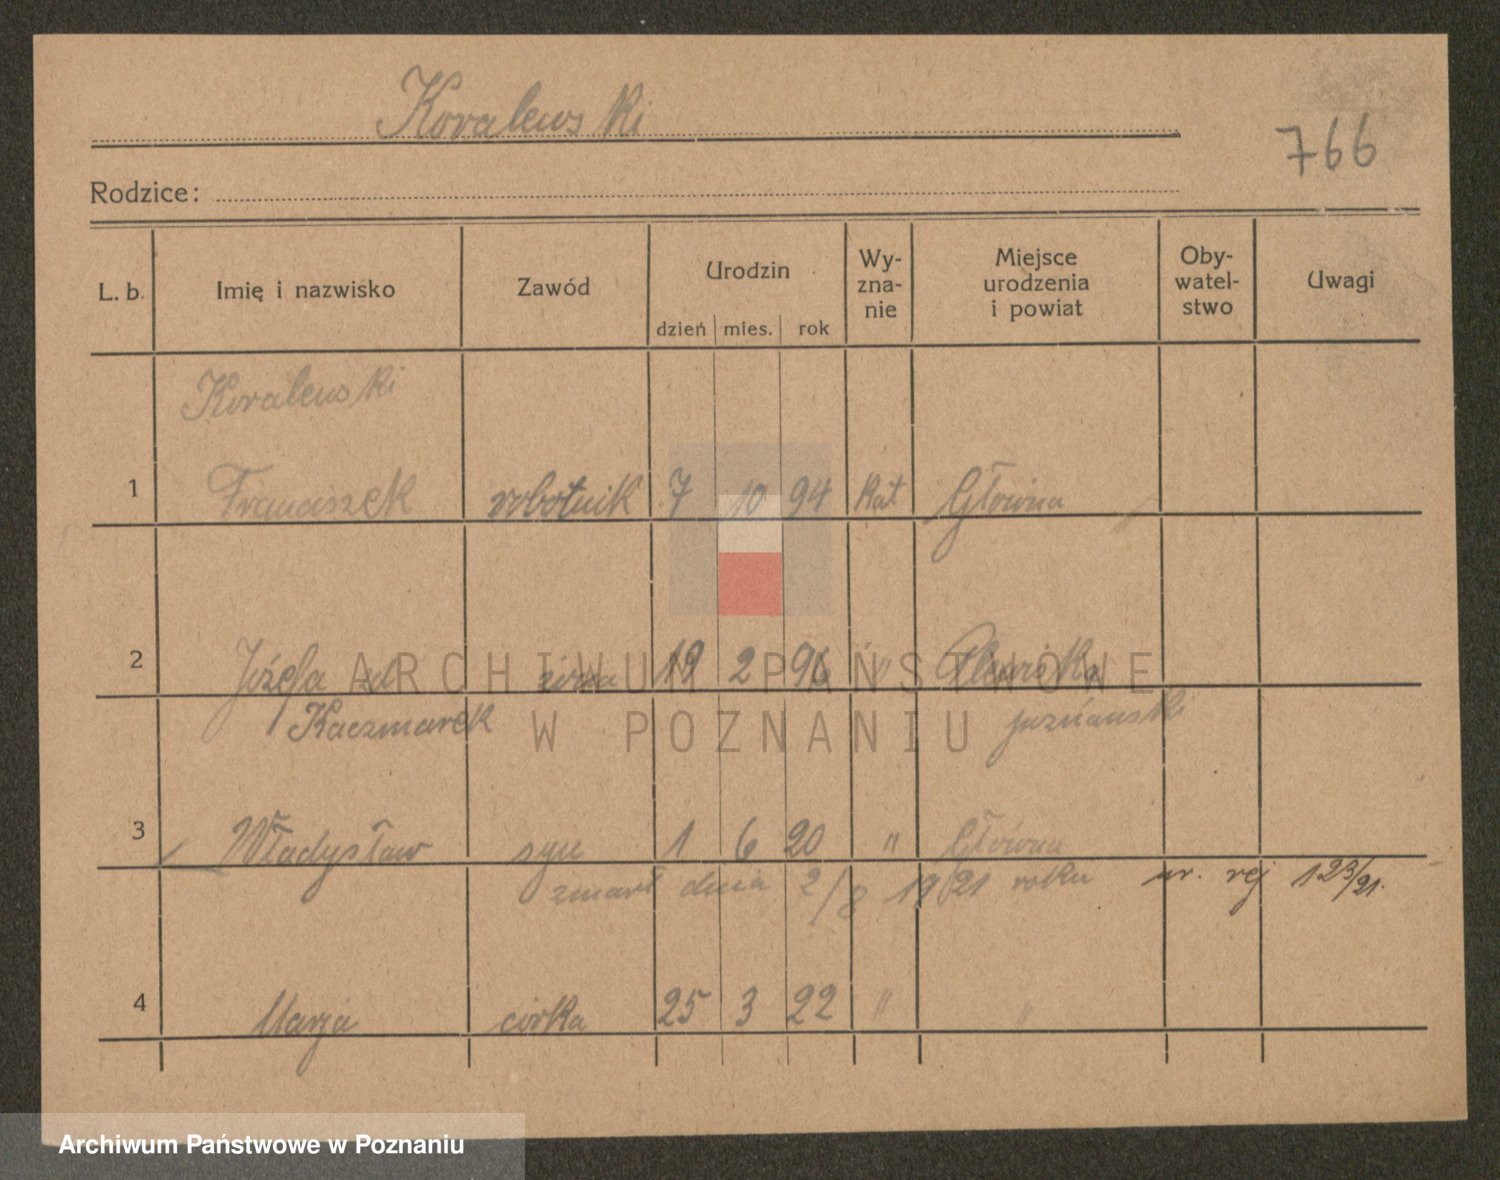 Kovalewski
766
Rodzice:
L. b. Imię i nazwisko Zawód Urodzin dzień mies. rok Wy-zna-nie Miejsce urodzenia i powiat Oby-watel-stwo Uwagi
Kovalewski
1 Franciszek robotnik 7 10 94 kat Główna
2 Józefa zd 19 2 96 "
Kaczmarek poznański
3 Władysław syn 1 6 20 " Główna
zmarł dnia 2/8 1921 roku nr. rej 123/21.
4 Marja córka 25 3 22 " "
ARCHIWUM PAŃSTWOWE
W POZNANIU
Archiwum Państwowe w Poznaniu